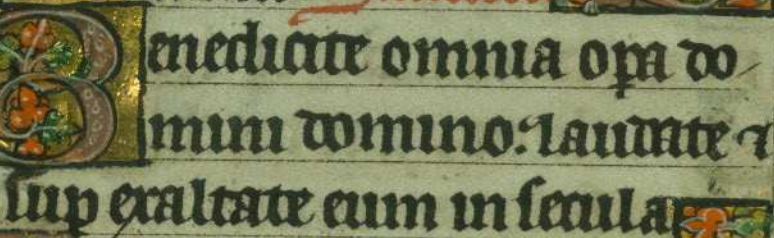 Benedicite omnia opa do
mini domino. laudate &
sup exaltate eum in secula